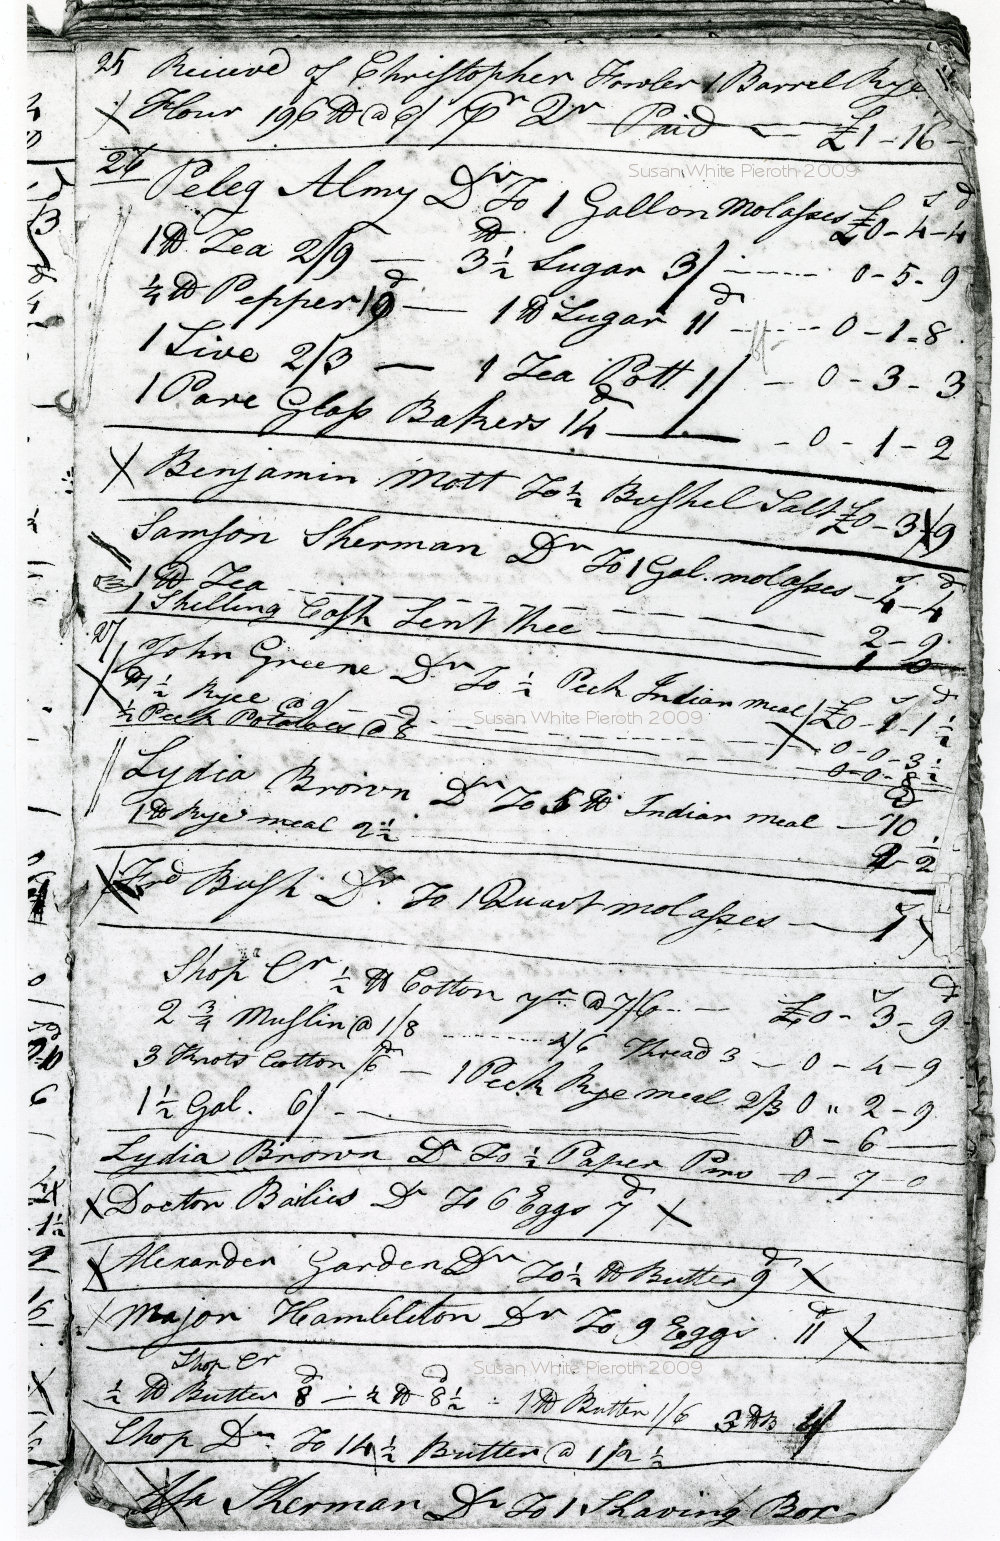 25 Received of Christopher Fowler 1 Barrel Rye
X Flour 196 ℔ @ 6/ Pr Qr Paid — £1-16-
26
Susan White Pieroth 2009
Peleg Almy Dr To 1 Gallon Molasses £0-4-4
1 ℔ Tea 2/9 — 3½ ℔ Sugar 3/ ---- 0-5-9
¼ ℔ Pepper 9d — 1 ℔ Sugar 11d ---- 0-1-8
1 Sive 2/3 — 1 Tea Pott 1/ - 0-3-3
1 Pare Glass Bakers 14d — - 0-1-2
X Benjamin Mott To ½ Bushel Salt £0-3-9
Samson Sherman Dr To 1 Gal. molasses - 4-4
1 ℔ Tea ---- 2-9
1 Shilling Cash Lent Thee — 1
27
X John Greene Dr To ½ Peck Indian meal £0-1-1½
1½ Ryee @ — 0-0-3½
½ Peck Potatoes @ 8d — 0-0-8
Susan White Pieroth 2009
Lydia Brown Dr To 5 ℔ Indian meal — 10d
1 ℔ Rye meal 2½ 2½
X Frd Bush Dr. To 1 Quart molasses — 1
Shop Cr ½ ℔ Cotton yrn @ 7/6 -- £0-3-9
2¾ Muslin @ 1/8 ---- 4/6 Thread 3 - 0-4-9
3 Knots Cotton 6d — 1 Peck Rye meal 2/3 0 " 2-9
1½ Gal. 6/ - — 0-6 —
Lydia Brown Dr To ½ Paper Pins -0-7-0
X Doctor Bailies Dr To 6 Eggs 7d X
X Alexander Garden Dr To ½ ℔ Butter 9d X
X Major Hambleton Dr To 9 Eggs 11d X
Shop Cr
Susan White Pieroth 2009
½ ℔ Butter 8d - ½ ℔ 8½d - 1 ℔ Butter 1/6 3 ℔ B 4/
Shop Dr To 14½ Butter @ 1/2½
Asa Sherman Dr To 1 Shaving Box